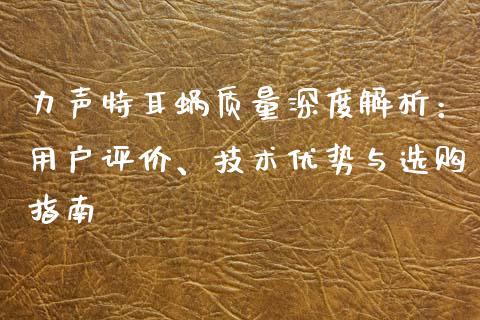 力声特耳蜗质量深度解析：
用户评价、技术优势与选购
指南